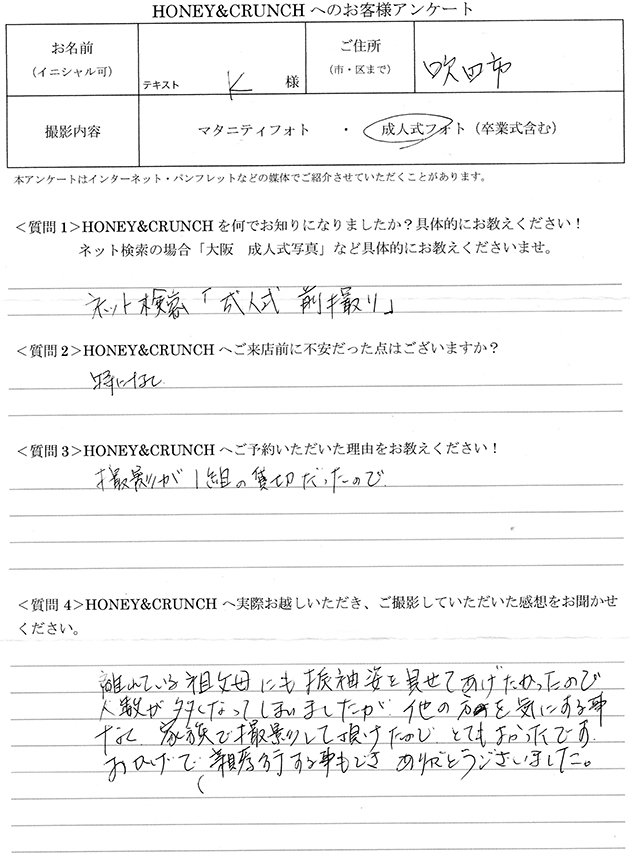 HONEY&CRUNCH へのお客様アンケート
お名前
(イニシャル可)
テキスト K 様
ご住所
(市・区まで)
吹田市
撮影内容
マタニティフォト ・ 成人式フォト(卒業式含む)
本アンケートはインターネット・パンフレットなどの媒体でご紹介させていただくことがあります。
＜質問 1＞HONEY&CRUNCH を何でお知りになりましたか？具体的にお教えください！
ネット検索の場合「大阪　成人式写真」など具体的にお教えくださいませ。
ネット検索「成人式 前撮り」
＜質問 2＞HONEY&CRUNCH へご来店前に不安だった点はございますか？
特になし
＜質問 3＞HONEY&CRUNCH へご予約いただいた理由をお教えください！
撮影が1組の貸切だったので
＜質問 4＞HONEY&CRUNCH へ実際お越しいただき、ご撮影していただいた感想をお聞かせ
ください。
離れている祖父母にも振袖姿を見せてあげたかったので
人数が多くなってしまいましたが 他の方を気にする事
なく 家族で撮影して頂けたので とてもよかったです.
おかげで 親孝行する事もでき ありがとうございました。